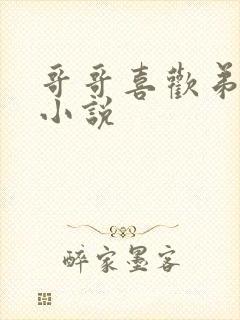 哥哥喜歡弟
小說
醉家墨客